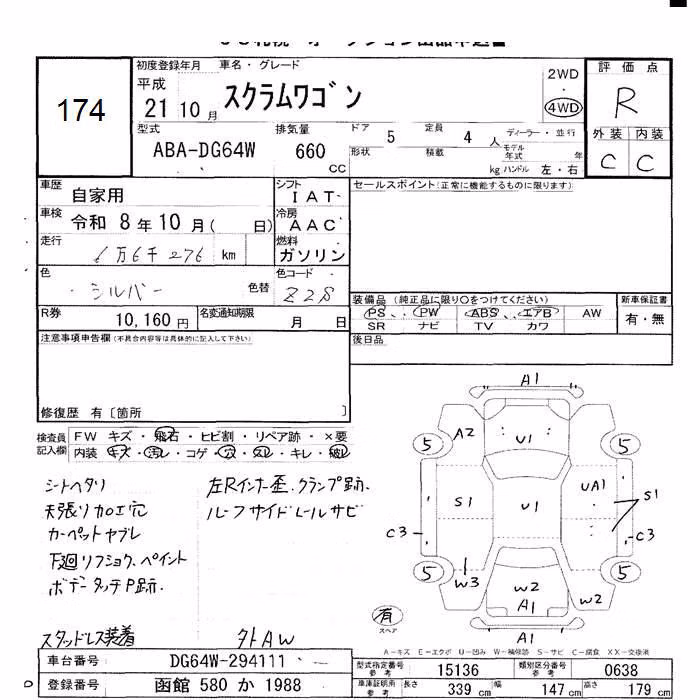 174
初度登録年月 車名・グレード
平成
21 10月 スクラムワゴン
2WD
・
4WD
評価点
R
外装 内装
C C
型式 排気量 ドア 5 定員 4人 ディーラー・並行
ABA-DG64W 660 CC
形状 積載 kg モデル年式 年 ハンドル 左・右
車歴 自家用
シフト IAT
セールスポイント(正常に機能するものに限ります)
車検 令和 8年10月( 日)
冷房 AAC
走行 6万6千276 km
燃料 ガソリン
色 シルバー 色替
色コード Z2S
R券 10,160円 名変通知期限 月 日
装備品 (純正品に限り○をつけてください) 新車保証書
PS PW ABS エアB AW
SR ナビ TV カワ
有・無
注意事項申告欄(不具合内容等は具体的に記入して下さい)
後日品
修復歴 有〔箇所 〕
検査員記入欄
FW キズ・飛石・ヒビ割・リペア跡・×要
内装 キズ・汚レ・コゲ・穴・スレ・キレ・破レ
シートヘタリ
天張リ加工穴
カーペットヤブレ
下廻リフショク、ペイント
ボデータッチP跡.
左Rインナー歪.クランプ跡.
ルーフサイドレールサビ
スタッドレス装着 外AW
A1
5 A2 U1 5
S1 U1 UA1 S1
C3 C3
5 W3 W2 W2 5
A1
A1
有
スペア
A-キズ E-エクボ U-凹み W-補修跡 S-サビ C-腐食 XX-交換済
車台番号 DG64W-294111
登録番号 函館 580 か 1988
型式指定番号 参考 15136 類別区分番号 参考 0638
車庫証明用 参考 長さ 339cm 幅 147cm 高さ 179cm